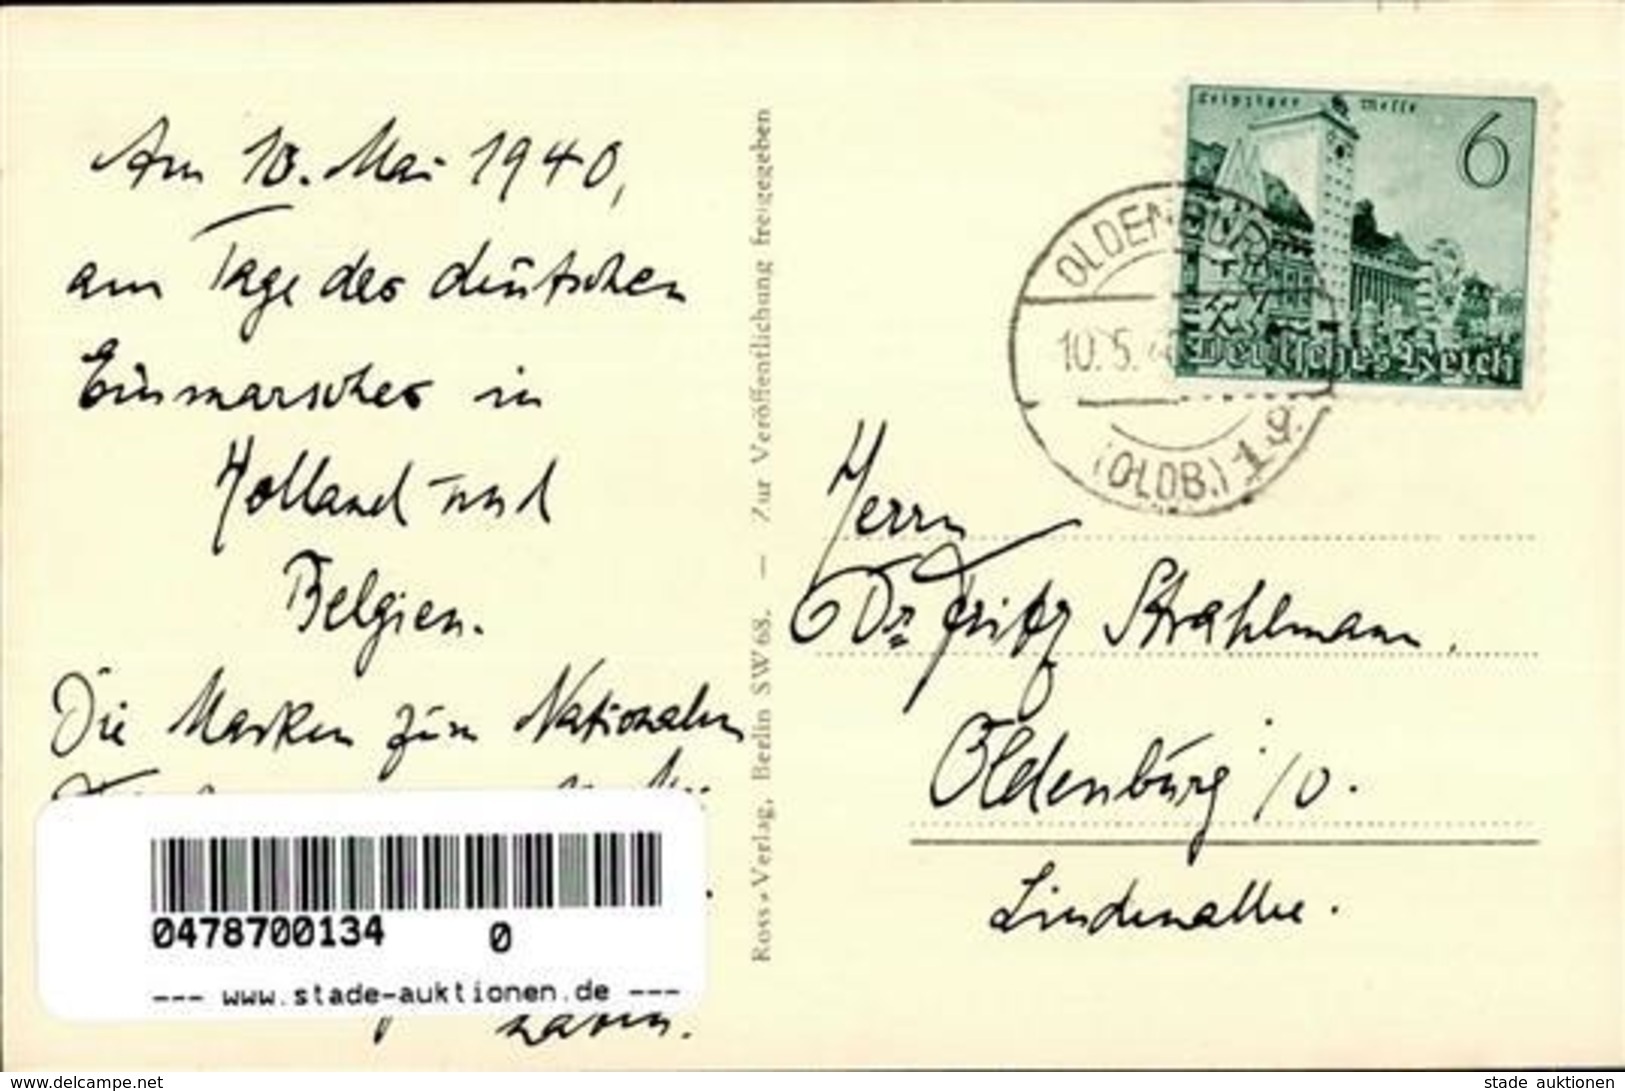 Am 10. Mai 1940,
am Tage des deutschen
Einmarsches in
Holland und
Belgien.
Die Marken zum Nationalen
0478700134 0
--- www.stade-auktionen.de ---
waren.
Ross-Verlag, Berlin SW 68. — Zur Veröffentlichung freigegeben
Leipziger Messe
6
Deutsches Reich
OLDENBURG
10.5.
(OLDB.) 1 g.
Herrn
Dr. Fritz Strahlmann.
Oldenburg i/O.
Lindenallee.
www.delcampe.net
stade auktionen